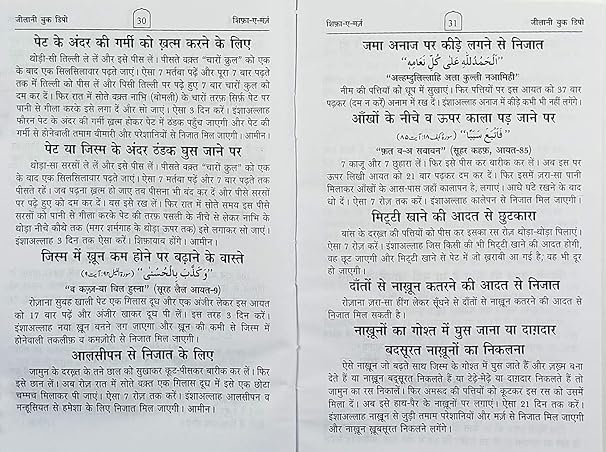 जीलानी बुक डिपो 30 शिफ़ा-ए-मर्ज़
पेट के अंदर की गर्मी को ख़त्म करने के लिए
थोड़ी-सी तिल्ली ले लें और इसे पीस लें। पीसते वक़्त “चारों क़ुल” को एक
के बाद एक सिलसिलावार पढ़ते जाएं। ऐसा 7 मर्तबा पढ़ें और पूरा 7 बार पढ़ते
तक में तिल्ली को पीस लें और पिसी तिल्ली पर पढ़े हुए 7 बार चारों क़ुल को
दम कर दें। फिर रात में सोते वक़्त नाभि (बोमली) के चारों तरफ़ सिर्फ़ पेट पर
पानी से गीला करके इसे लगा दें और सो जाएं। ऐसा 3 दिन करें। इंशाअल्लाह
फ़ौरन पेट के अंदर की गर्मी ख़त्म होकर पेट में ठंडक पहुंच जाएगी और पेट की
गर्मी से होनेवाली तमाम बीमारी और परेशानियों से निजात मिल जाएगी। आमीन।
पेट या जिस्म के अंदर ठंडक घुस जाने पर
थोड़ा-सा सरसों ले लें और इसे पीस लें। पीसते वक़्त “चारों क़ुल” को एक
के बाद एक सिलसिलावार पढ़ते जाएं। ऐसा 7 मर्तबा करें और 7 बार पढ़ते तक
पीसते रहें। जब पढ़ना ख़त्म हो जाए तब पीसना भी बंद कर दें और पीसे सरसों
पर पढ़े हुए को दम कर दें। बस इसे रख लें। फिर रात में सोते समय इस पीसे
सरसों को पानी से गीला करके पेट की तरफ़ पसली के नीचे से लेकर नाभि के
थोड़ा नीचे कौये तक (मगर शर्मगाह के थोड़ा ऊपर तक) इसे लगाकर सो जाएं।
इंशाअल्लाह 3 दिन तक ऐसा करें। शिफ़ायाब होंगे। आमीन।
जिस्म में ख़ून कम होने पर बढ़ाने के वास्ते
“وَكَذَّبَ بِالْحُسْنٰى”
“व कज़्ज़-बा बिल हुस्ना” (सूरह लैल आयत-9)
रोज़ाना सुबह खाली पेट एक गिलास दूध और एक अंजीर लेकर इस आयत
को 17 बार पढ़ें और अंजीर खाकर दूध पी लें। इस तरह 3 दिन करें।
इंशाअल्लाह नया ख़ून बनने लग जाएगा और ख़ून की कमी से जिस्म में
होनेवाली तकलीफ़ व कमज़ोरी से निजात मिल जाएगी।
आलसीपन से निजात के लिए
जामुन के दरख़्त के तने छाल को सुखाकर कूट-पीसकर बारीक कर लें। फिर
इसे छान लें। अब रोज़ रात में सोते वक़्त एक गिलास दूध में इसे एक छोटा
चम्मच मिलाकर पी जाएं। ऐसा 7 रोज़ तक करें। इंशाअल्लाह आलसीपन व
मनहूसियत से हमेशा के लिए निजात मिल जाएगी। आमीन।
शिफ़ा-ए-मर्ज़ 31 जीलानी बुक डिपो
जमा अनाज पर कीड़े लगने से निजात
“اَلْحَمْدُ لِلّٰهِ عَلٰى كُلِّ نَعَامِهٖ”
“अल्हम्दुलिल्लाहि अला कुल्ली नआमिही”
नीम की पत्तियों को धूप में सुखाएं। फिर पत्तियों पर इस आयत को 37 बार
पढ़कर (दम न करें) अनाम में रख दें। इंशाअल्लाह अनाज में कीड़े कभी भी नहीं लगेंगे।
आँखों के नीचे व ऊपर काला पड़ जाने पर
“فَاَتْبَعَ سَبَبًا”
“फ़त व-अ सबावन” (सूरह कहफ़, आयत-85)
7 काजू और 7 छुहारा लें। फिर इसे पीस कर बारीक कर लें। अब इस पर
ऊपर लिखी आयत को 21 बार पढ़कर दम कर दें। फिर इसमें ज़रा-सा पानी
मिलाकर आँखों के आस-पास जहां कालापन है, लगाएं। आधे घंटे रखने के बाद
धो दें। ऐसा 7 रोज़ तक करें। इंशाअल्लाह कालेपन से निजात मिल जाएगी।
मिट्टी खाने की आदत से छुटकारा
बांस के दरख़्त की पत्तियों को पीस कर इसका रस रोज़ थोड़ा-थोड़ा पिलाएं।
ऐसा 7 रोज़ करें। इंशाअल्लाह जिस किसी की भी मिट्टी खाने की आदत होगी,
वह छूट जाएगी और मिट्टी खाने से पेट में जो ख़राबी आ गई है, वह भी दूर
हो जाएगी।
दाँतों से नाख़ून कतरने की आदत से निजात
रोज़ाना ज़रा-सा हींग लेकर सूँघने से दाँतों से नाख़ून कतरने की आदत से
निजात मिल सकती है।
नाख़ूनों का गोश्त में घुस जाना या दाग़दार
बदसूरत नाख़ूनों का निकलना
ऐसे नाख़ून जो बढ़ते साथ जिस्म के गोश्त में घुस जाते हैं और ज़ख़्म बना
देते हैं या नाख़ून बदसूरत निकलते हैं या टेढ़े-मेढ़े या दाग़दार निकलते हैं तो
जामुन का रस निकालें। फिर अमरूद की पत्तियों को कूटकर इस रस को उसमें
मिला दें। अब इसे हाथ-पैर के नाख़ूनों पर लगाएं। ऐसा 21 दिन तक करें।
इंशाअल्लाह नाख़ून से जुड़ी तमाम परेशानियों और मर्ज़ से निजात मिल जाएगी
और नाख़ून ख़ूबसूरत निकलने लगेंगे।